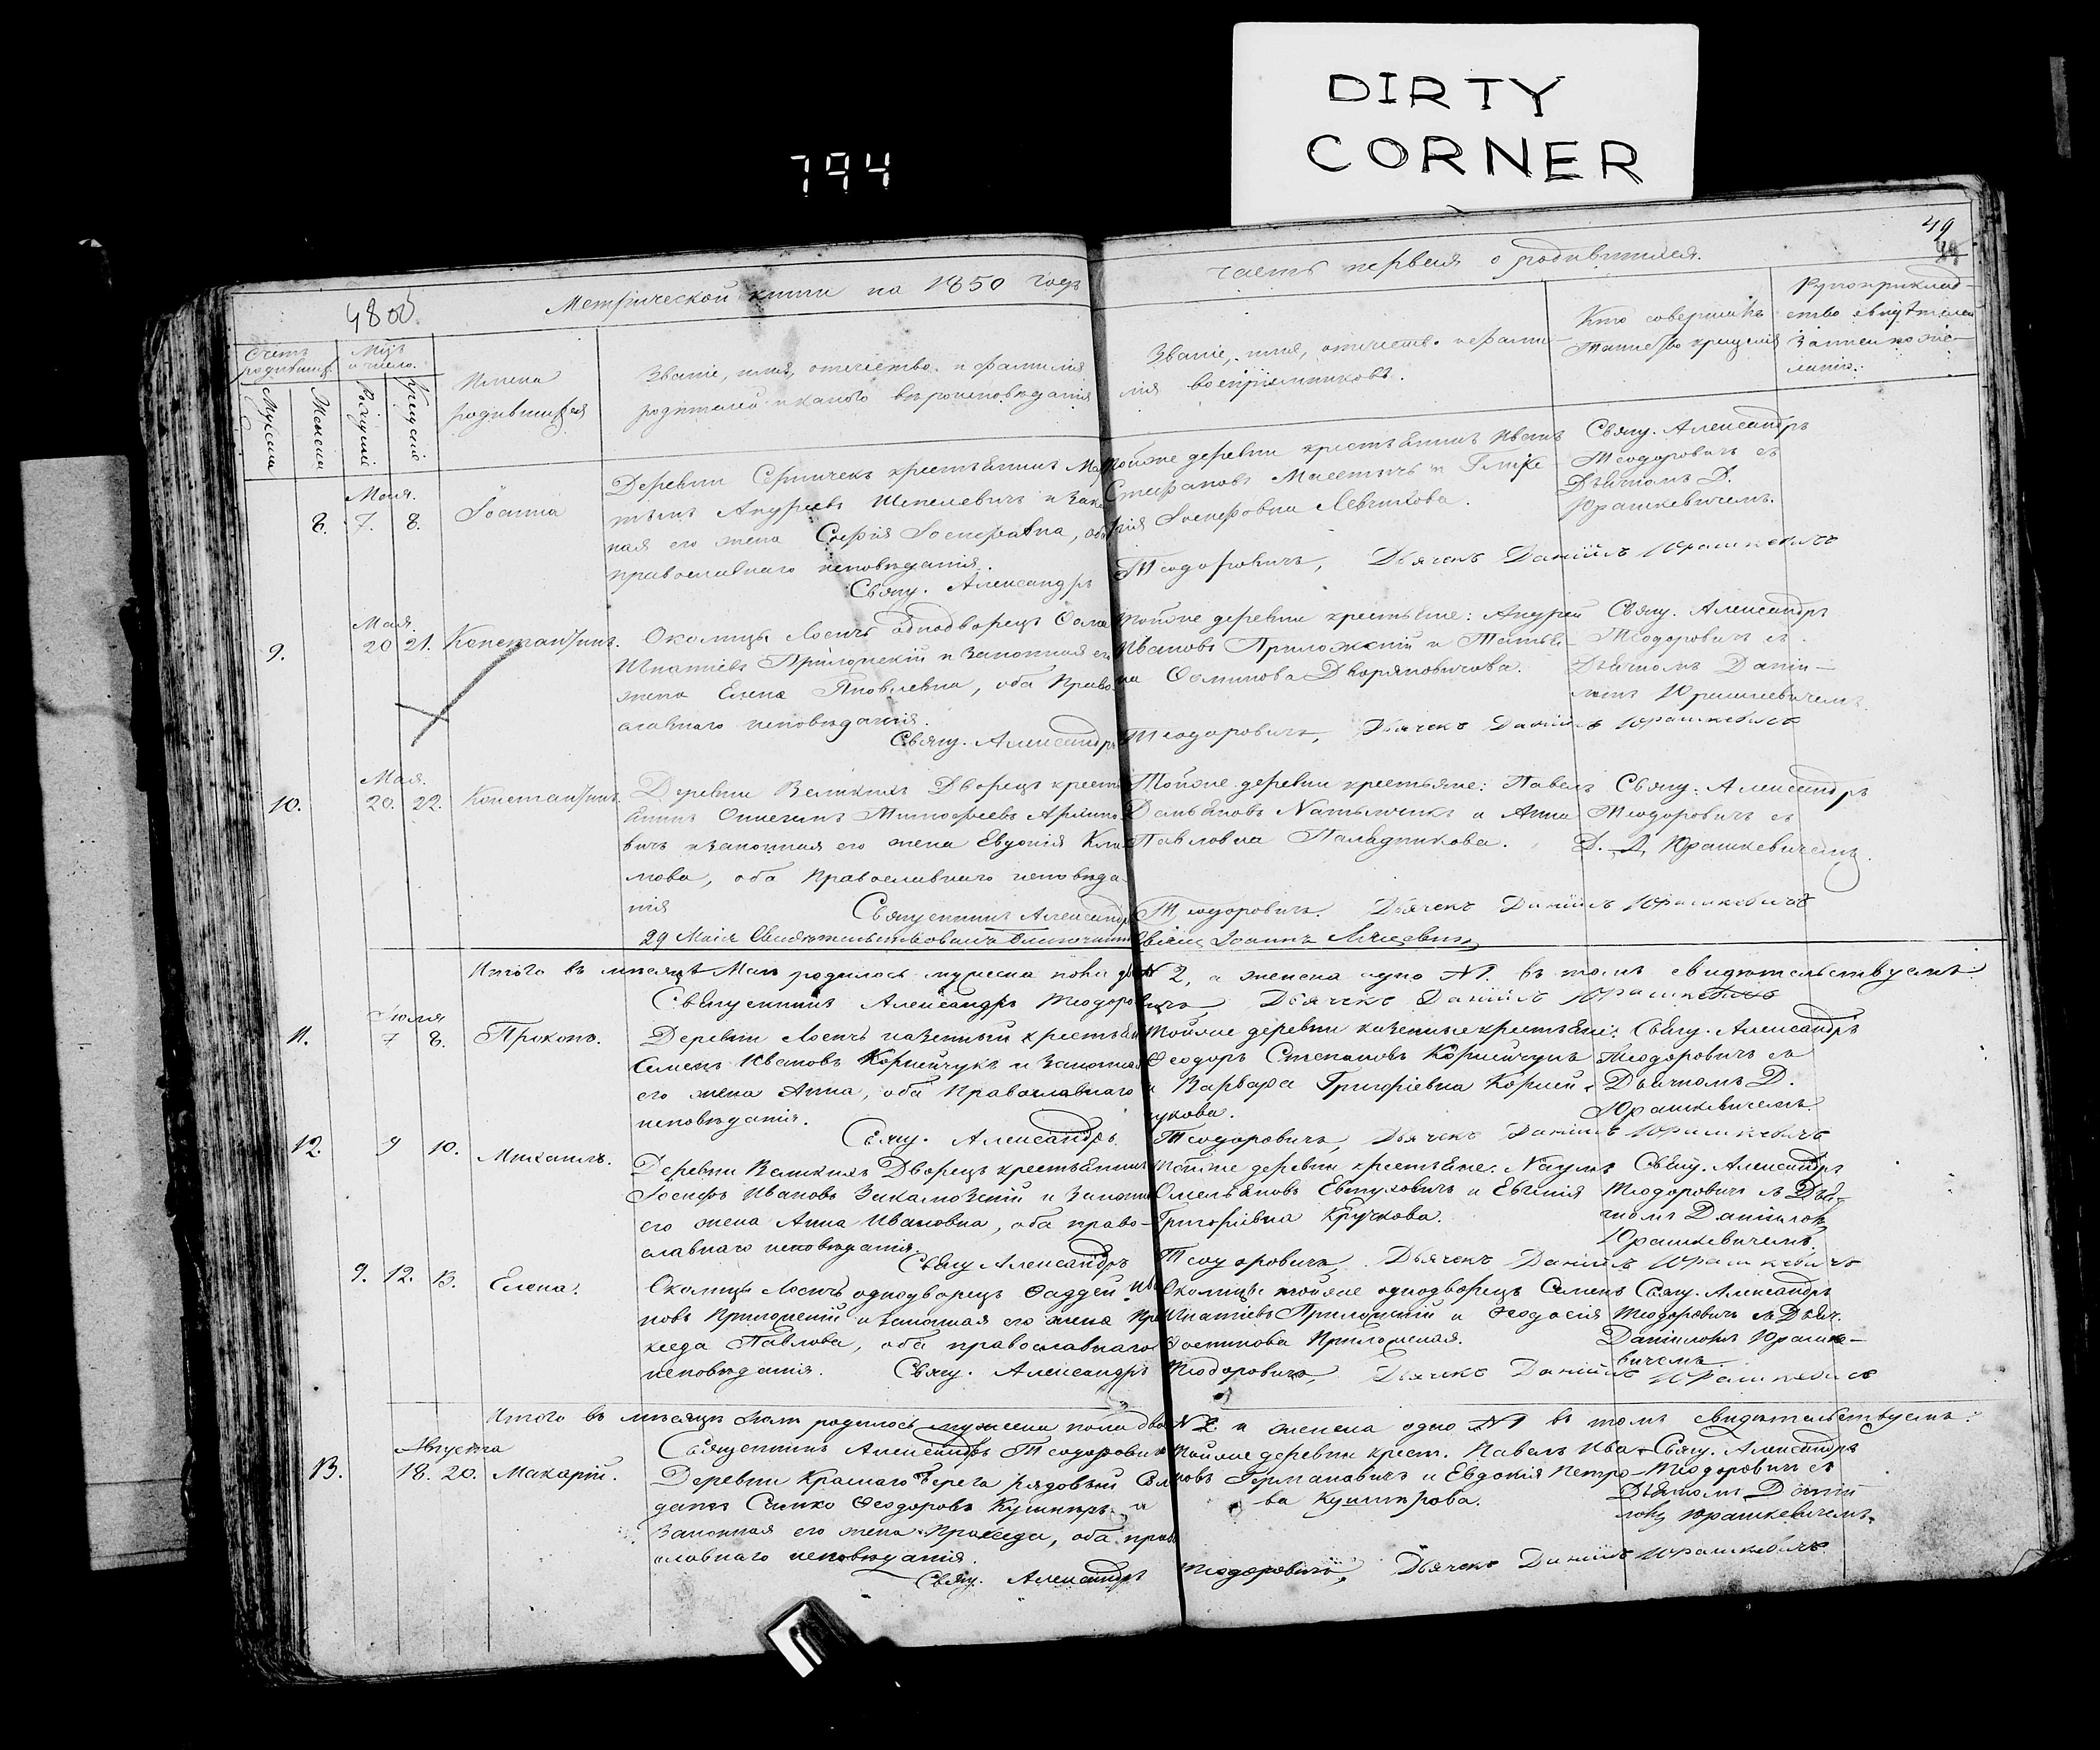 DIRTY
CORNER
794
49
4800
Метрической книги на 1850 годъ
часть первая о родившихся.
Счетъ родивших.
Мцъ и число.
Мужеска
Женска
Рожденія
Крещенія
Имена
родившихся
Званіе, имя, отчество и фамилія
родителей и какого вѣроисповѣданія
Званіе, имя, отчество и фами-
лія воспріемниковъ.
Кто совершалъ
таинство крещенія
Рукоприклад-
ство свидѣтелей
записи по же-
ланію.
Маія.
8. 7. 8.
Іоанна
Деревни крестьянинъ
Андреевъ Шепелевичъ и закон
ная его жена Софія Іосифовна, оба
православнаго исповѣданія.
Свящ. Александръ
Тойже деревни крестьянинъ Иванъ
Стефановъ и
Іосифовна Левчикова.
Теодоровичъ, Дьячекъ Даніилъ Юрашкевичъ
Свящ. Александръ
Теодоровичъ съ
Дьячкомъ Д.
Юрашкевичемъ.
Мая.
9. 20 21. Константинъ.
Околицы Лосичъ однодворецъ
Игнатіевъ Приложскій и законная его
жена Елена Яковлевна, оба право-
славнаго исповѣданія.
Свящ. Александръ
Тойже деревни крестьяне: Андрей
Ивановъ Приложскій и Татья-
на Осипова Дворяновичова.
Теодоровичъ, Дьячекъ Даніилъ Юрашкевичъ
Свящ. Александръ
Теодоровичъ съ
Дьячкомъ Дании-
ломъ Юрашкевичемъ.
Мая.
10. 20. 22. Константинъ.
Деревни Великихъ Дворецъ кресть
янинъ Тимофеевъ
вичъ и законная его жена Евдокія Кли
мова, оба Православнаго исповѣда-
нія
Священникъ Александръ
Тойже деревни крестьяне: Павелъ
Демьяновъ и Анна
Павловна
Теодоровичъ. Дьячекъ Даніилъ Юрашкевичъ
Свящ. Александръ
Теодоровичъ съ
Д. Д. Юрашкевичемъ.
29 Маія Свидѣтельствовалъ Іоаннъ
Итого въ мѣсяцѣ Маѣ родилось мужеска пола два № 2, а женска одно № 1. въ томъ свидѣтельствуемъ:
Священникъ Александръ Теодоровичъ, Дьячекъ Даніилъ Юрашкевичъ
Іюля
11. 7 8. Прокопъ.
Деревни Лосичъ казенный крестьян
Семенъ Ивановъ Корнейчукъ и законная
его жена Анна, оба Православнаго
исповѣданія.
Свящ. Александръ
Тойже деревни казенные крестьяне:
Ѳеодоръ Степановъ Корнейчукъ
и Варвара Григоріевна Корней-
чукова.
Теодоровичъ, Дьячекъ Даніилъ Юрашкевичъ
Свящ. Александръ
Теодоровичъ съ
Дьячкомъ Д.
Юрашкевичемъ.
12. 9 10. Михаилъ.
Деревни Великихъ Дворецъ крестьянинъ
Іосифъ Ивановъ и законная
его жена Анна Ивановна, оба право-
славнаго исповѣданія.
Свящ Александръ
Тойже деревни крестьяне: Наумъ
Омельяновъ Евтуховичъ и Евгенія
Григоріевна Кручкова.
Теодоровичъ, Дьячекъ Даніилъ Юрашкевичъ
Свящ. Александръ
Теодоровичъ съ Дья-
чкомъ Даніиломъ
Юрашкевичемъ.
9. 12. 13. Елена.
Околицы Лосичъ однодворецъ Фаддей Ива
новъ Приложскій и законная его жена Пра
кседа Павлова, оба православнаго
исповѣданія. Свящ. Александръ
Околицы тойже однодворецъ Семенъ
Игнатіевъ Приложскій и Ѳеодосія
Приложская.
Теодоровичъ, Дьячекъ Даніилъ Юрашкевичъ
Свящ. Александръ
Теодоровичъ съ Дьяч.
Даніиломъ Юрашке-
вичемъ.
Итого въ мѣсяцѣ родилось мужеска пола два № 2 а женска одно № 1 въ томъ свидѣтельствуемъ:
Священникъ Александръ Теодоровичъ
Августа
13. 18. 20. Макарій.
Деревни Краснаго Берега рядовый Сол
датъ Симко Ѳеодоровъ Кушниръ и
законная его жена Пракседа, оба право
славнаго исповѣданія.
Свящ. Александръ
Тойже деревни крест. Павелъ Ива-
новъ Германовичъ и Евдокія Петро-
ва Кушнирова.
Теодоровичъ, Дьячекъ Даніилъ Юрашкевичъ.
Свящ. Александръ
Теодоровичъ съ
Дьячкомъ Даніи-
ломъ Юрашкевичемъ.